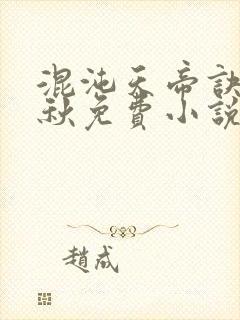 混沌天帝訣
秋免費小說
趙成